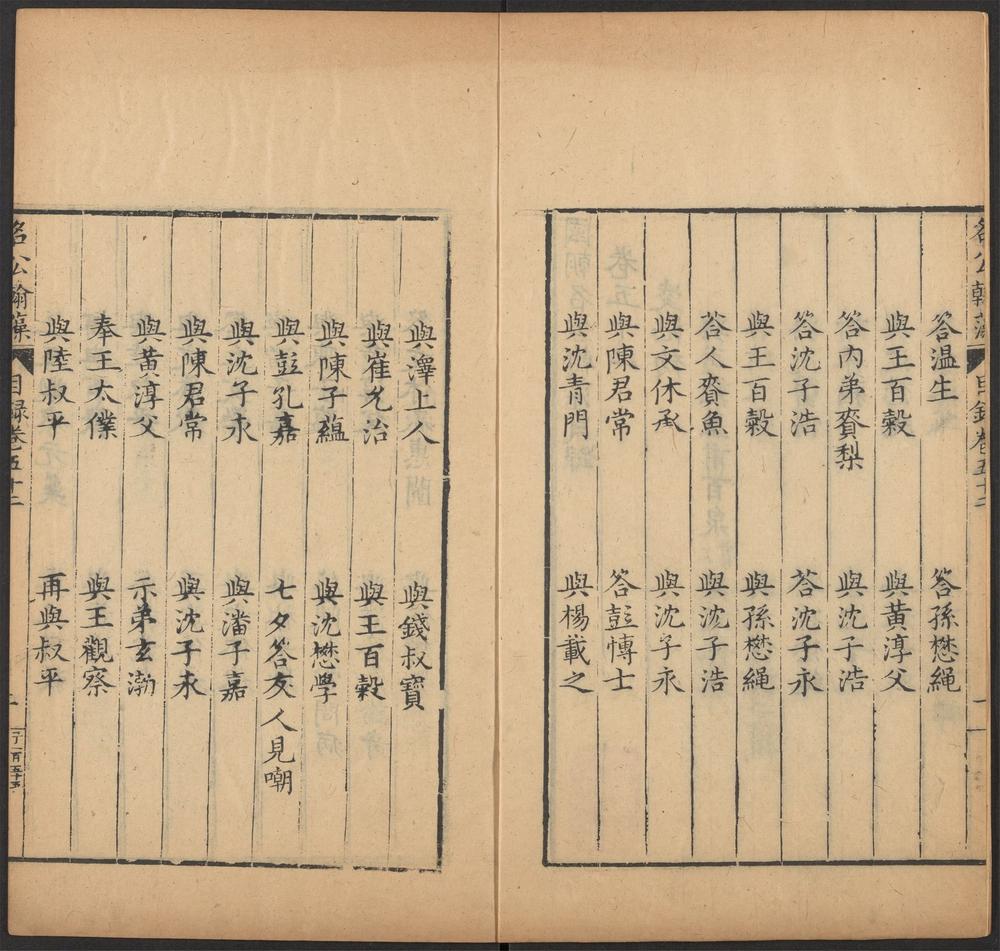 名公翰藻 目錄卷五十二 一
答温生 答孫懋繩
與王百穀 與黃淳父
答內弟賚梨 與沈子浩
答沈子浩 荅沈子永
與王百穀 與孫懋繩
荅人賚魚 與沈子浩
與文休承 與沈子永
與陳君常 答彭博士
與沈青門 與楊載之
與澤上人 與錢叔寶
與崔允治 與王百穀
與陳子蘊 與沈懋學
與彭孔嘉 七夕答友人見嘲
與沈子永 與潘子嘉
與陳君常 與沈子永
與黃淳父 示弟玄渤
奉王太僕 與王觀察
與陸叔平 再與叔平
名公翰藻 目録卷五十二 一